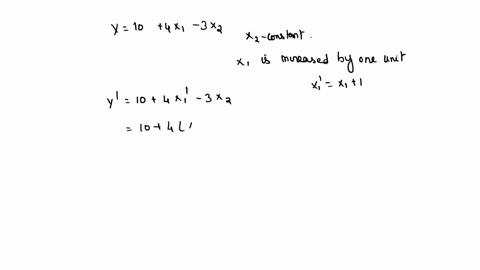 y = 10 + 4x₁ - 3x₂
x₂ - constant.
x₁ is increased by one unit
x₁' = x₁ + 1
y' = 10 + 4x₁' - 3x₂
= 10 + 4(